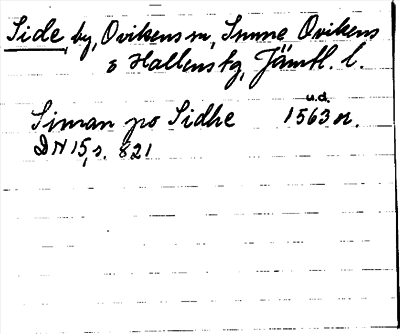 Side, by, Ovikens sn, Sunne Ovikens
o Hallens tg, Jämtl. l.
u.d.
Siman po Sidhe 1563 n.
DN 15, s. 821